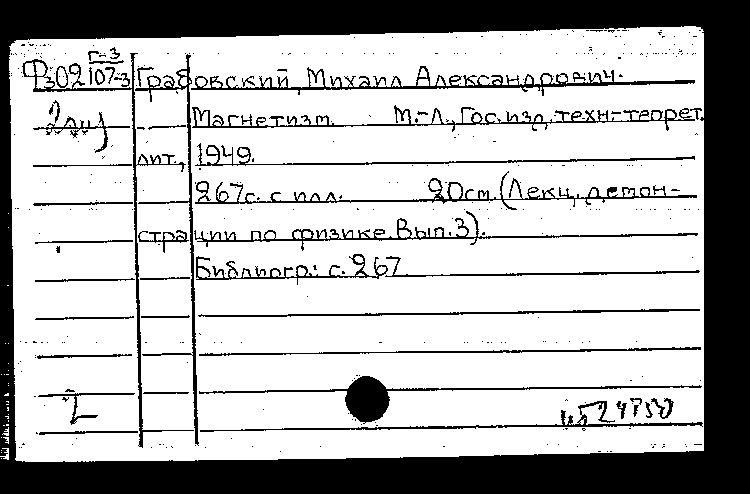 Г-3
Ф302 107-3 Грабовский, Михаил Александрович.
Магнетизм. М.-Л., Гос. изд. техн-теорет.
лит., 1949.
267с. с илл. 20см. (Лекц. демон-
страции по физике. Вып. 3).
Библиогр.: с. 267